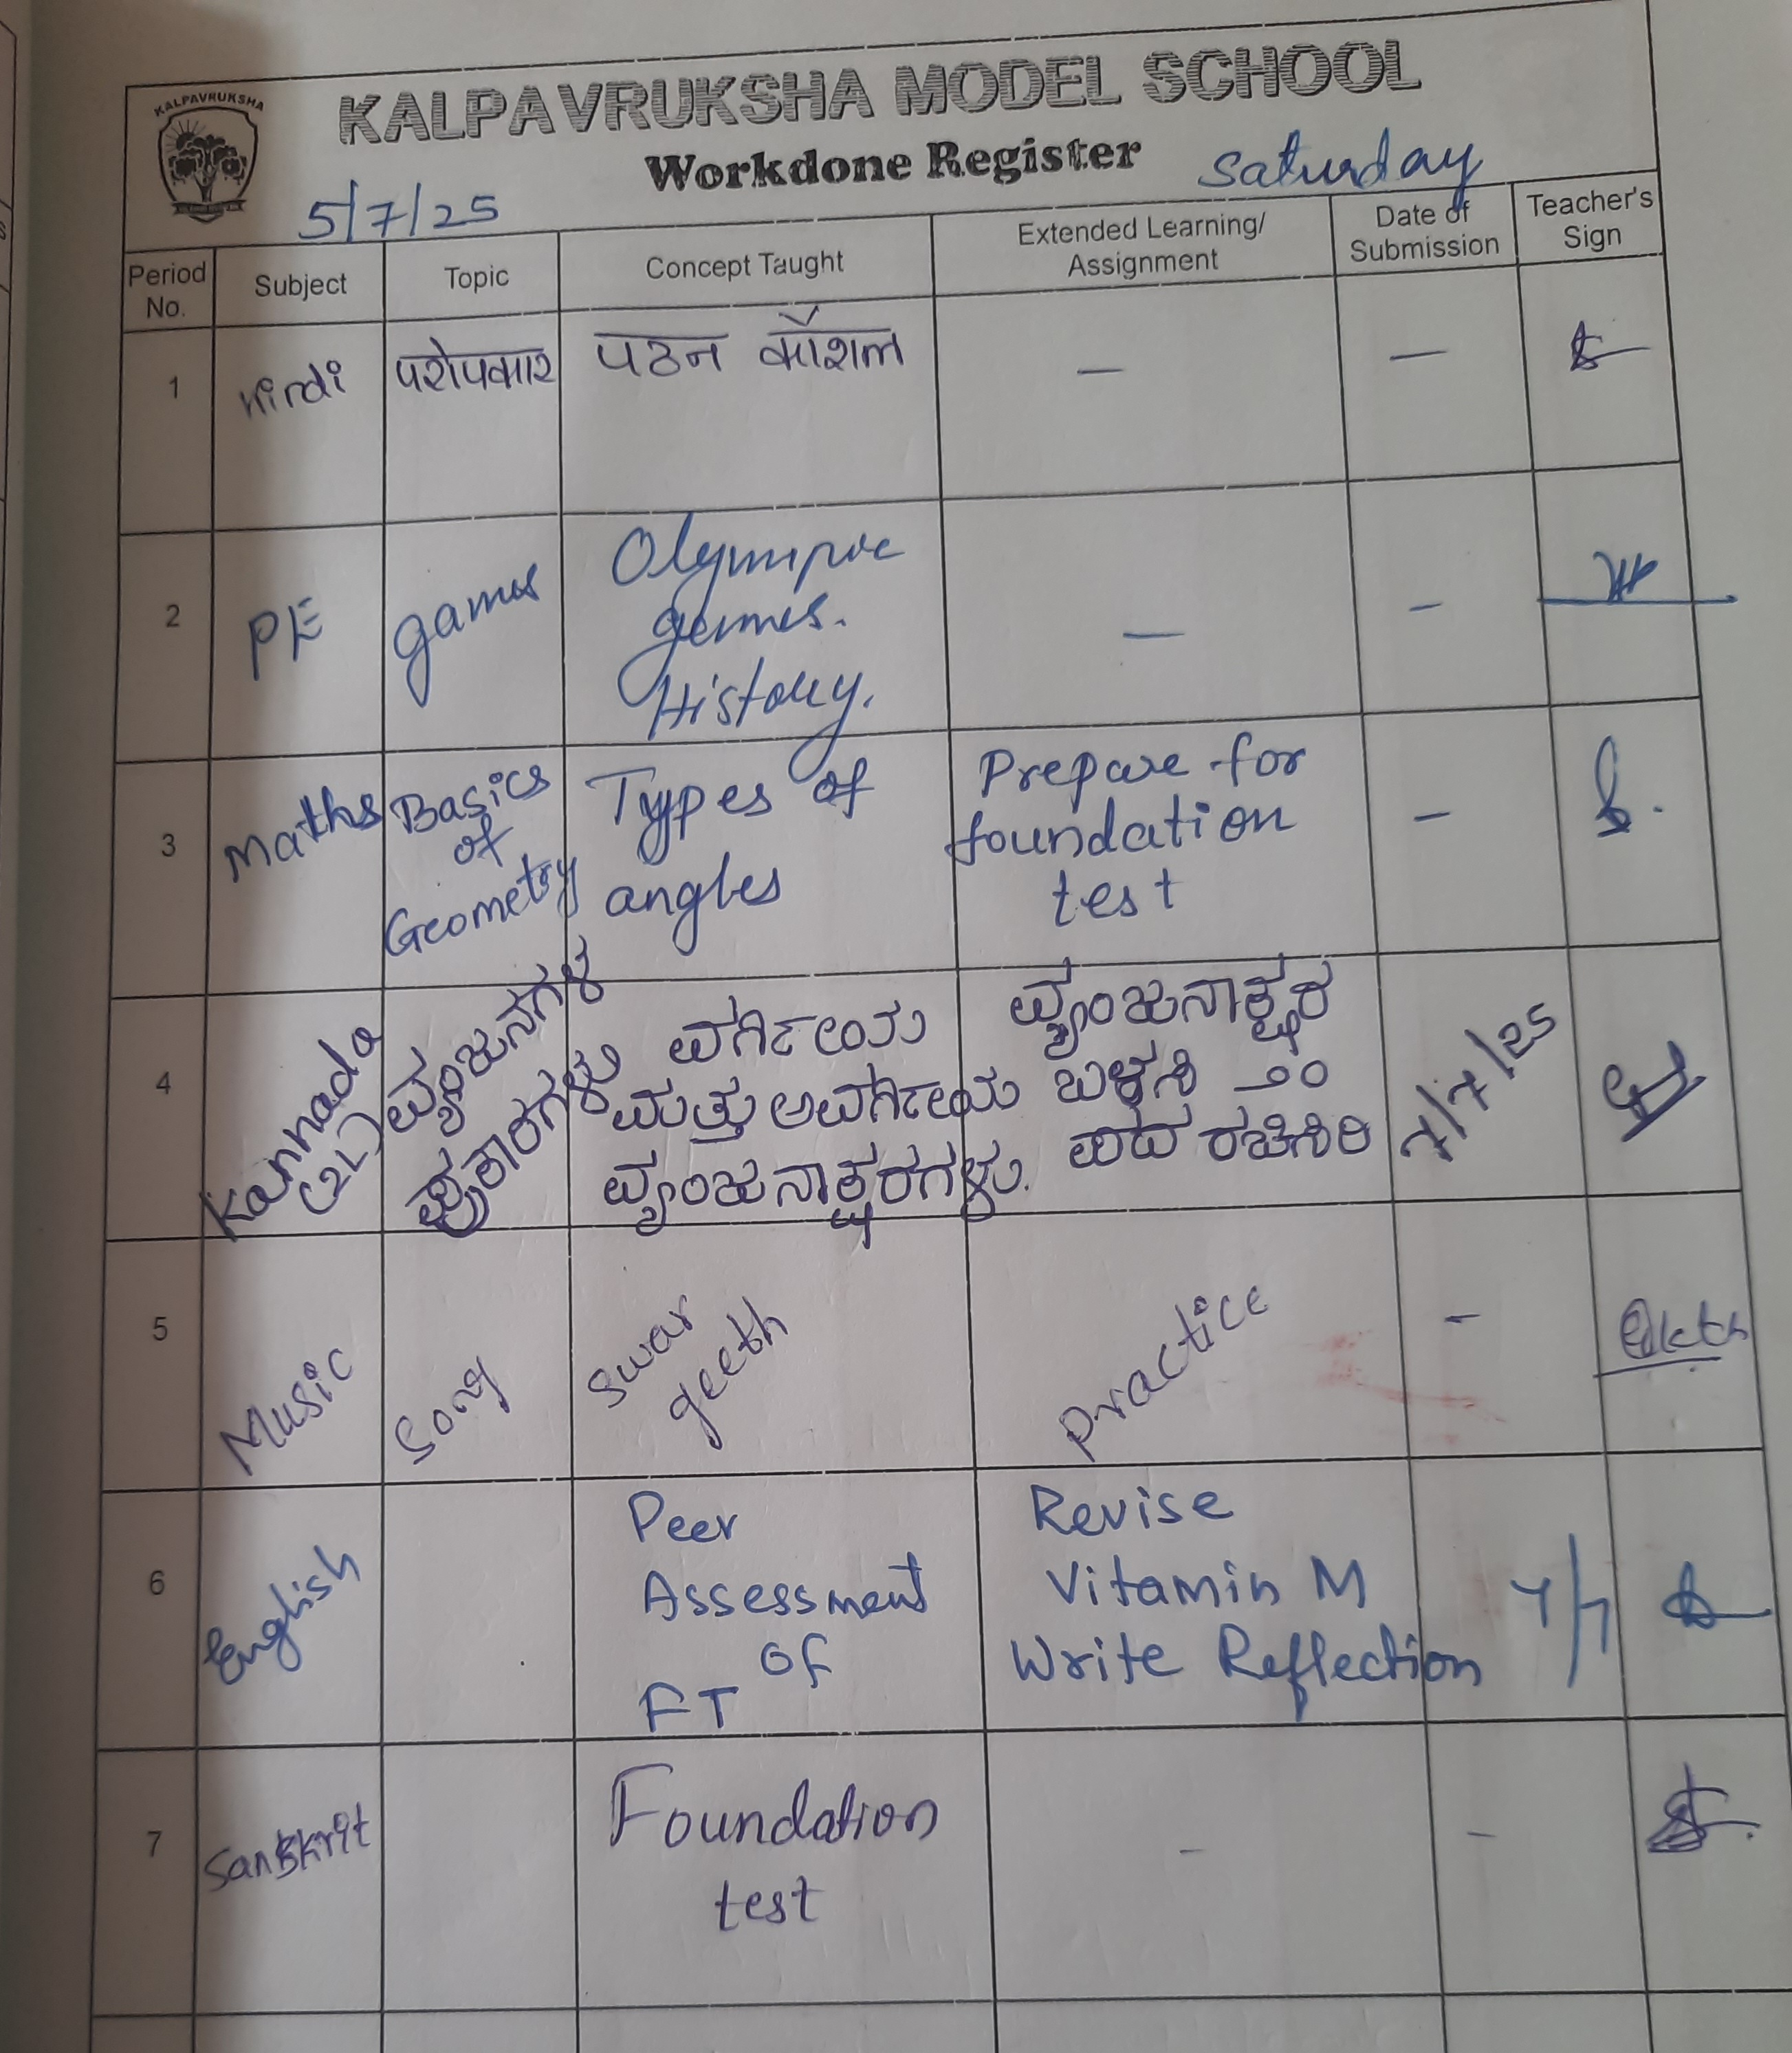 KALPAVRUKSHA
KALPAVRUKSHA MODEL SCHOOL
Workdone Register
5/7/25 Saturday
Period No. Subject Topic Concept Taught Extended Learning/ Assignment Date of Submission Teacher's Sign
1 Hindi परोपकार पठन कौशल — —
2 PE games Olympic games. History. — -
3 Maths Basics of Geometry Types of angles Prepare for foundation test -
4 Kannada (2L) ವ್ಯಂಜನಗಳ ಪ್ರಕಾರಗಳು ವರ್ಗೀಯ ಮತ್ತು ಅವರ್ಗೀಯ ವ್ಯಂಜನಾಕ್ಷರಗಳು. ವ್ಯಂಜನಾಕ್ಷರ ಬಳಸಿ ೨೦ ಪದ ರಚಿಸಿರಿ 7/7/25
5 Music Song Swar geeth Practice -
6 English Peer Assessment of FT Revise Vitamin M Write Reflection 7/7
7 Sanskrit Foundation test - -